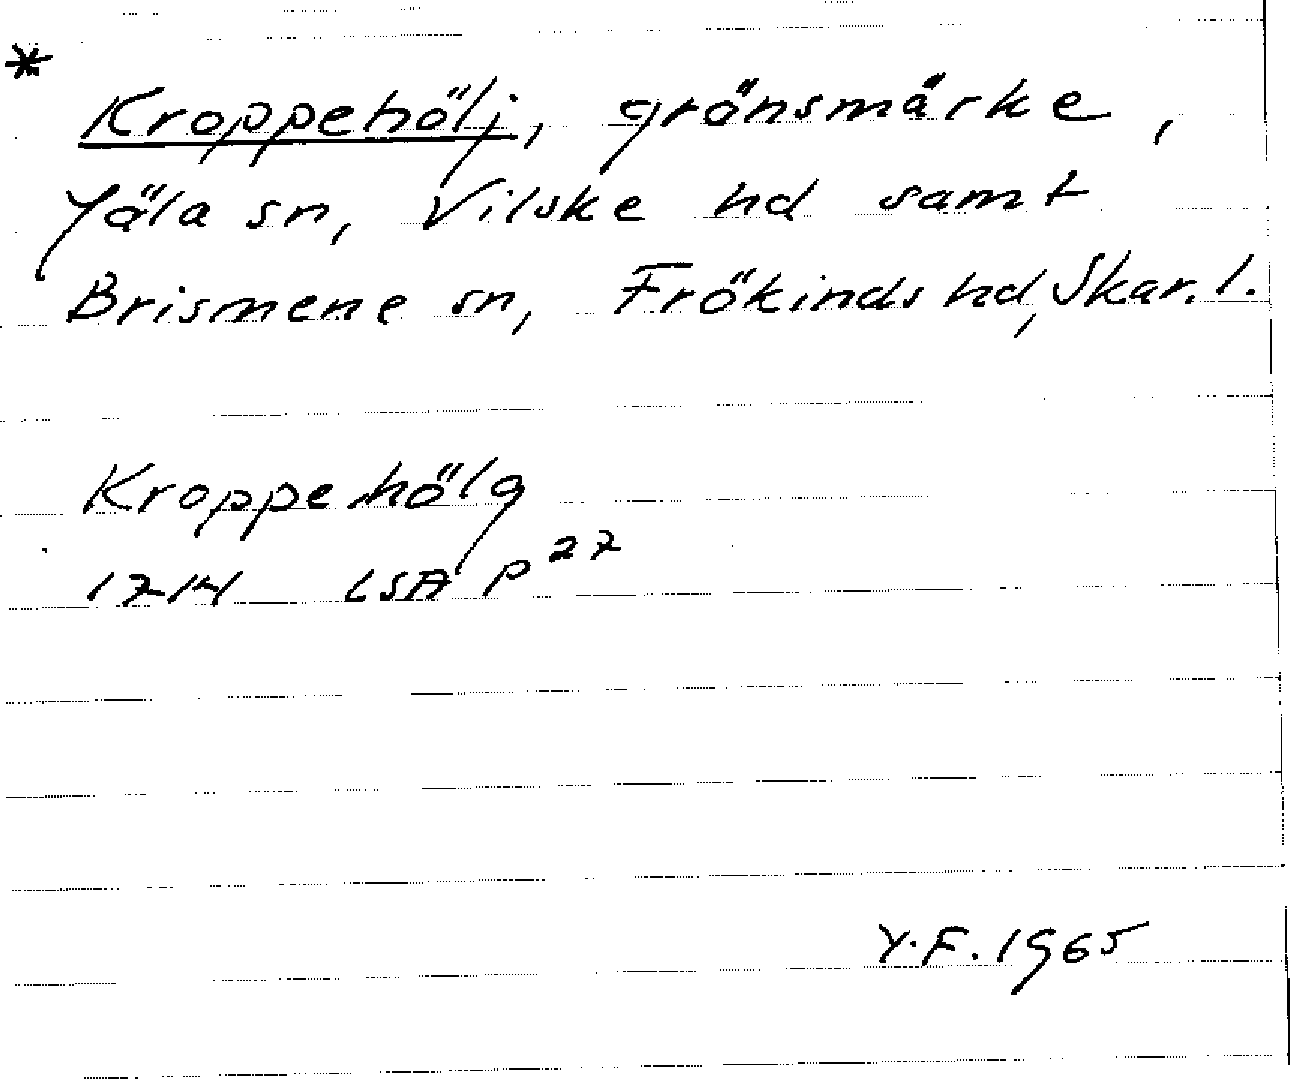 * Kroppehölj, gränsmärke,
Jäla sn, Vilske hd samt
Brismene sn, Frökinds hd, Skar. l.
Kroppehölg
1714 LSA p 27
Y.F. 1965